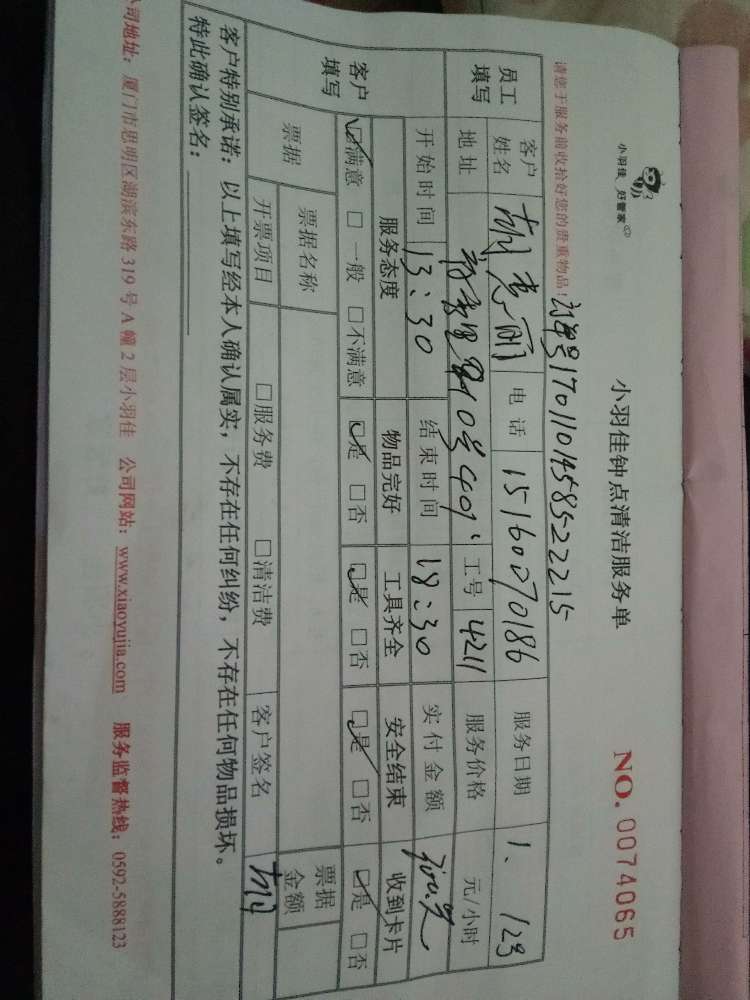 小羽佳 好管家
小羽佳钟点清洁服务单
NO. 0074065
请您于服务前收拾好您的贵重物品!
订单号17011014585222215
员工填写
客户姓名 胡惠丽 电话 15160070186 服务日期 1、12号
地址 10号409、 工号 4211 服务价格 元/小时
开始时间 13:30 结束时间 18:30 实付金额
客户填写
服务态度 物品完好 工具齐全 安全结束 收到卡片
☑满意 □一般 □不满意 ☑是 □否 ☑是 □否 ☑是 □否 ☑是 □否
票据 票据名称 票据金额
开票项目 □服务费 □清洁费 客户签名 胡
客户特别承诺:以上填写经本人确认属实,不存在任何纠纷,不存在任何物品损坏。
特此确认签名:
公司地址:厦门市思明区湖滨东路319号A幢2层小羽佳 公司网站:www.xiaoyujia.com 服务监督热线:0592-5888123